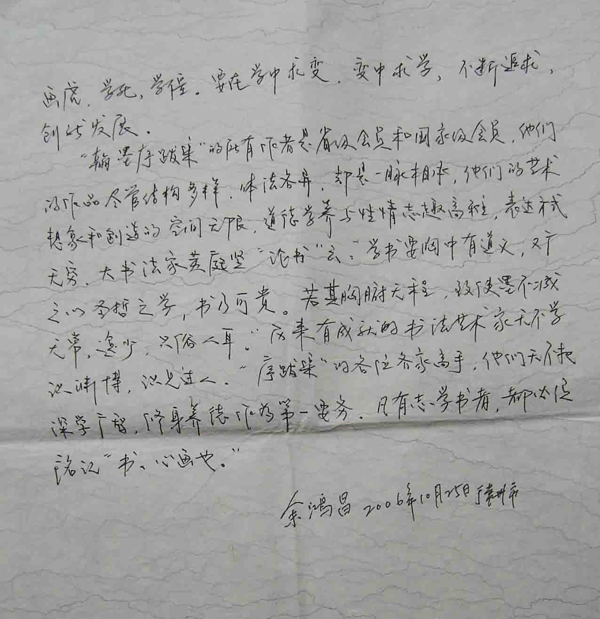 画虎、学死,学僵。要在学中求变、变中求学,不断追求,
创新发展。
“翰墨序跋集”的所有作者是省级会员和国家级会员,他们
的作品尽管结构多样,体法各异,却是一脉相承,他们的艺术
想象和创造的空间无限,道德学养与性情志趣高雅,表达方式
无穷。大书法家黄庭坚“论书”云:“学书要胸中有道义,又广
之以圣哲之学,书乃可贵。若其胸府无程,致使墨不减
元常、逸少,只俗人耳。”历来有成就的书法艺术家无不学
识渊博,识见过人。“序跋集”的各位名家高手,他们无不把
深学广智,修身养德作为第一要务。凡有志学书者,都必须
铭记“书,心画也。”
余鸿昌 2006年10月25日于市